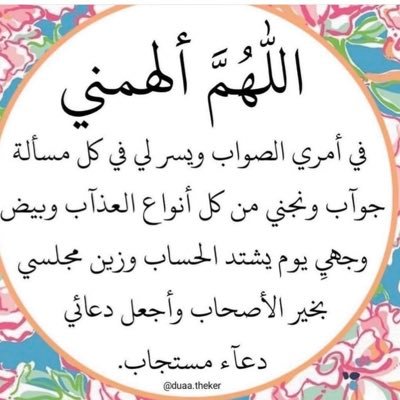 اللّٰهُمَّ ألهمني
في أمري الصواب ويسر لي في كل مسألة
جوآب ونجني من كل أنواع العذآب وبيض
وجهيِ يوم يشتد الحساب وزين مجلسي
بخير الأصحاب وأجعل دعائي
دعآء مستجاب.
@duaa.theker